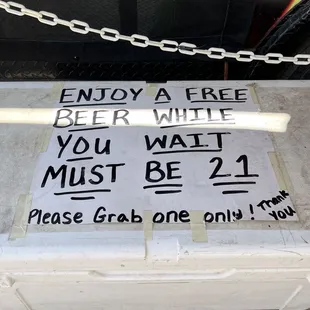 ENJOY A FREE
BEER WHILE
YOU WAIT
MUST BE 21
Please Grab one only! Thank
You